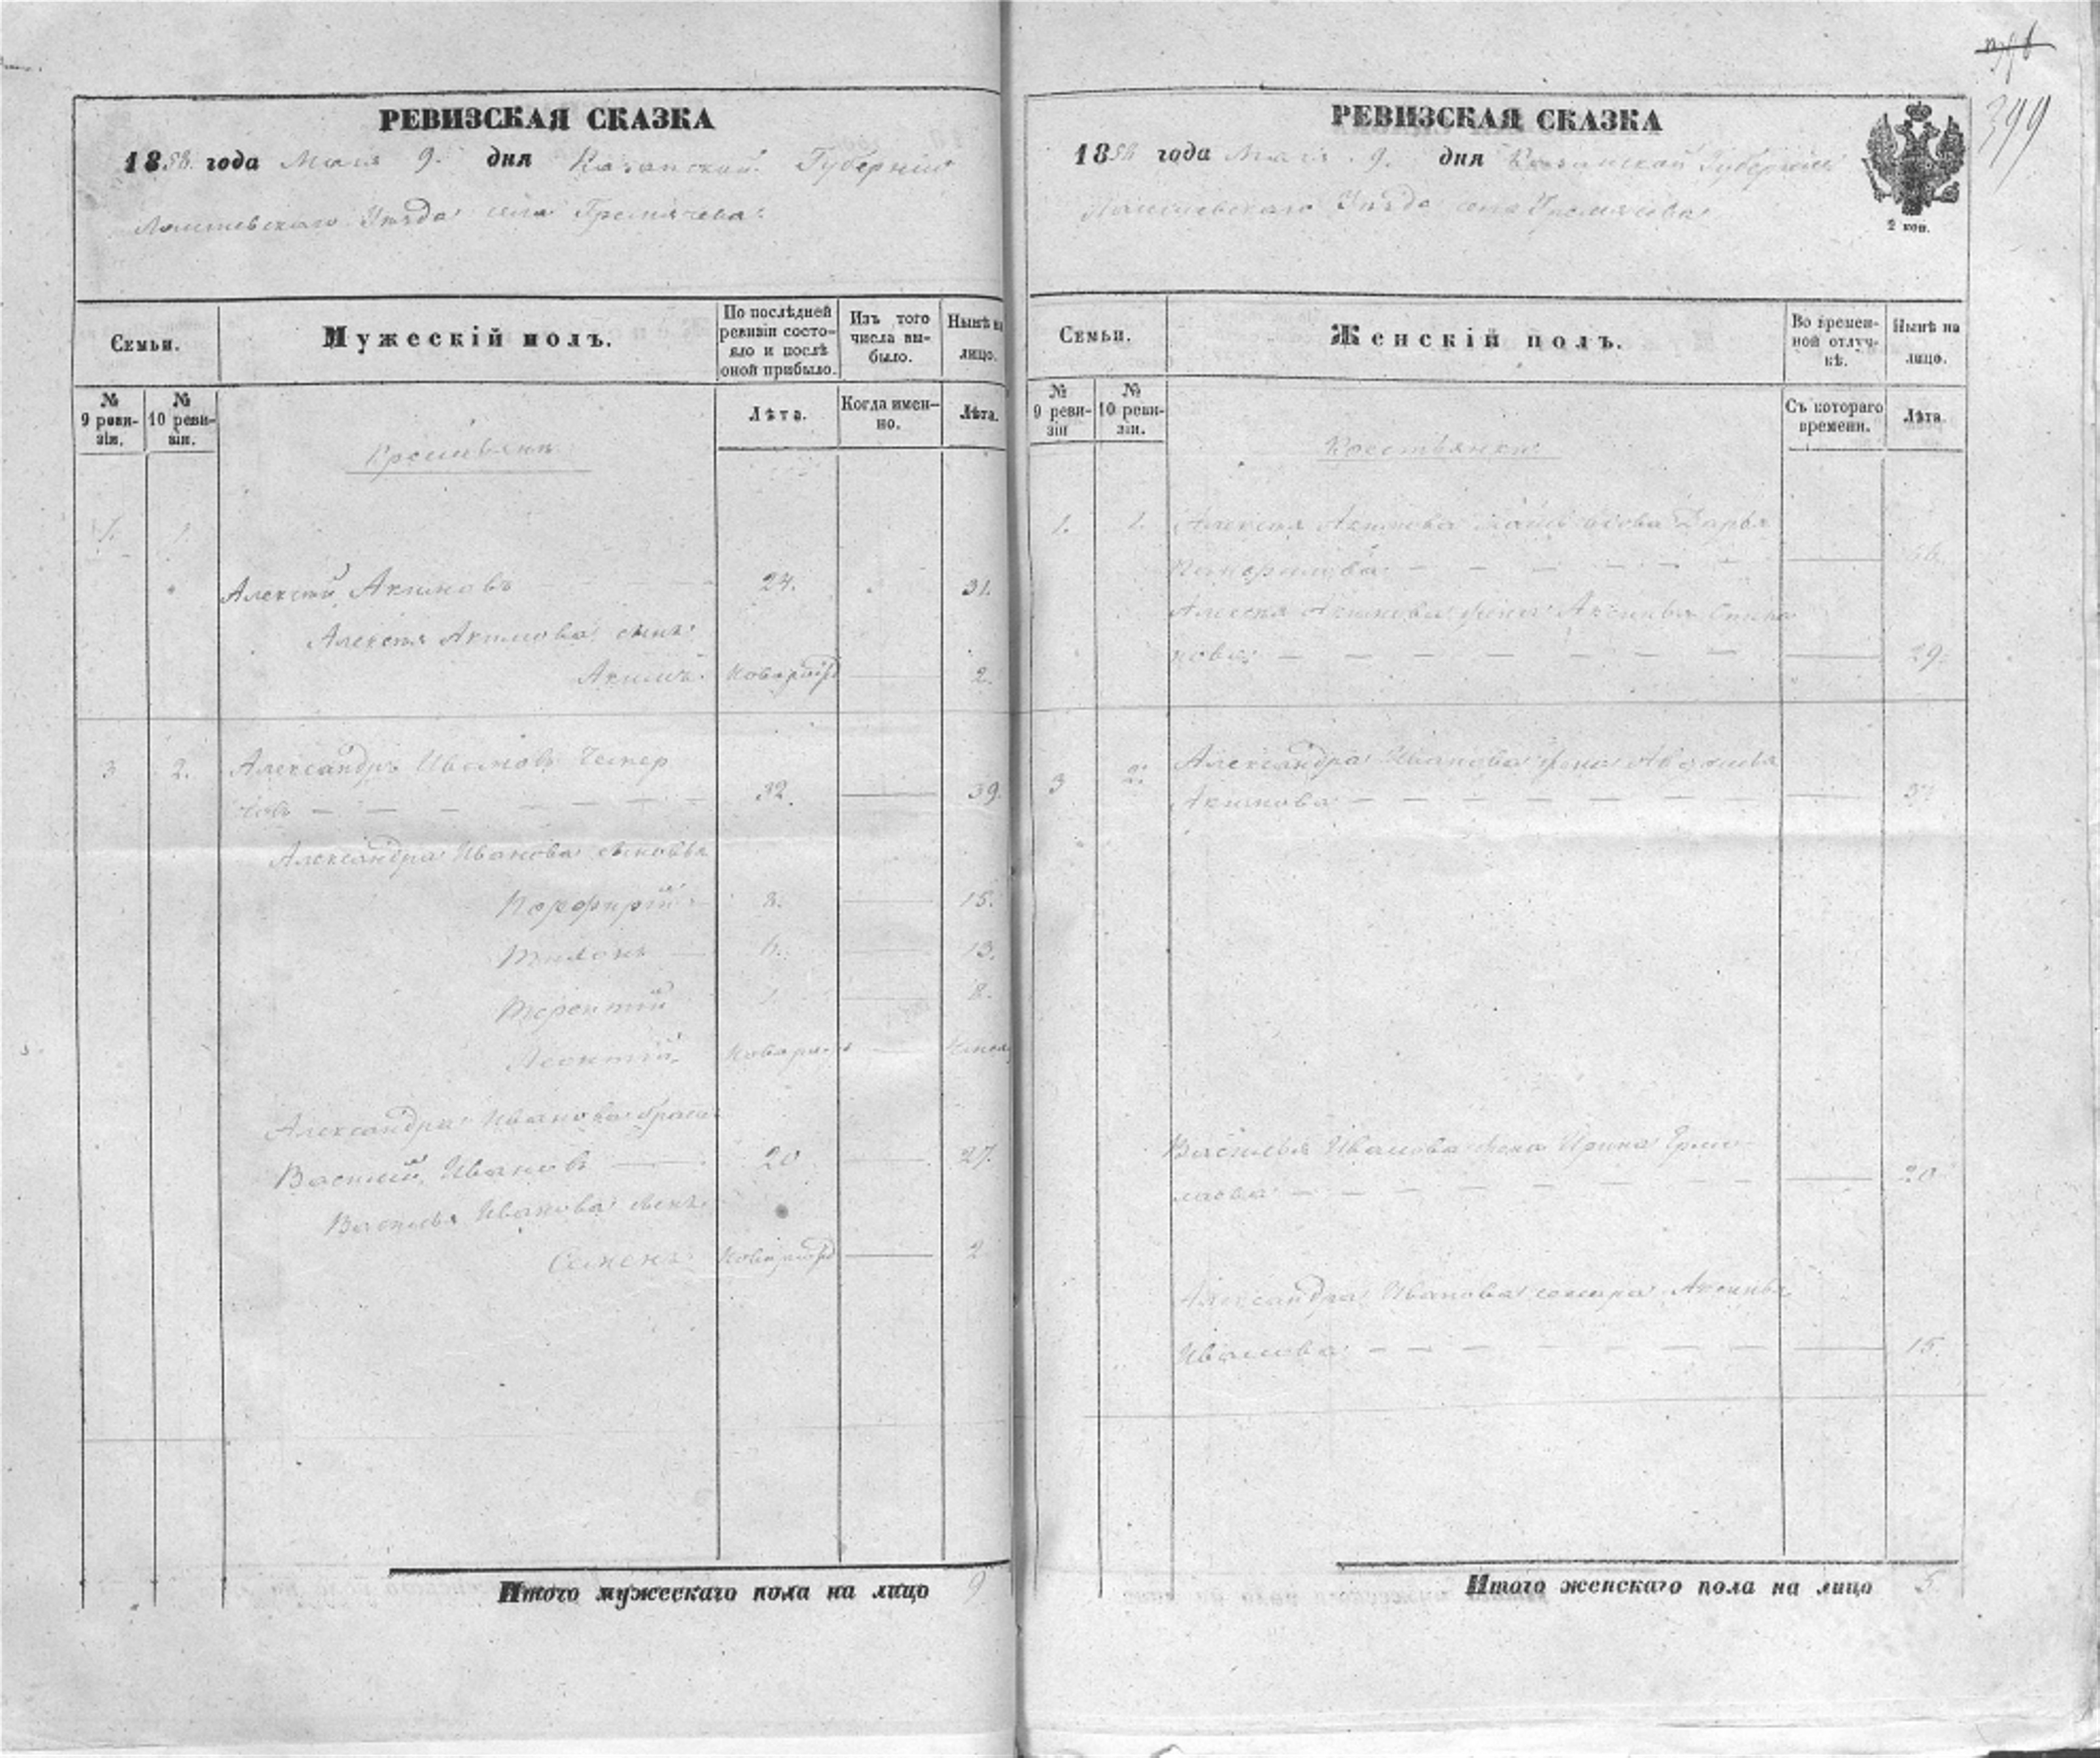 399
РЕВИЗСКАЯ СКАЗКА
1858. года Мая 9. дня Казанской Губернии
Лаишевскаго Уѣзда села Гремячева.
Семьи.
Мужескій полъ.
По послѣдней ревизіи состояло и послѣ оной прибыло.
Изъ того числа выбыло.
Нынѣ на лицо.
№ 9 ревизіи.
№ 10 ревизіи.
Лѣта.
Когда именно.
Лѣта.
Крестьяне
1. 1.
Алексѣй Акимовъ 24. 31.
Алексѣя Акимова сынъ
Акимъ новорожд 2.
3 2. Александръ Ивановъ
32. 39.
Александра Иванова сыновья
Порфирій 8. 15.
Филонъ 6. 13.
Терентій 1 8.
Леонтій новорож
Александра Иванова братъ
Василій Ивановъ 20 27.
Василья Иванова сынъ
Семенъ новорожд 2
Итого мужескаго пола на лицо 9
РЕВИЗСКАЯ СКАЗКА
1858 года Мая 9. дня Казанской Губерніи
Лаишевскаго Уѣзда села Гремячева
2 коп.
Семьи.
Женскій полъ.
Во временной отлучкѣ.
Нынѣ на лицо.
№ 9 ревизіи
№ 10 ревизіи.
Съ котораго времени.
Лѣта.
Крестьянки
1. 1. Алексѣя Акимова мать вдова Дарья
Алексѣя Акимова жена Аксинья Степа
нова 29.
3 2. Александра Иванова жена Авдотья
Акимова 37
Василья Иванова жена Ирина Ермо
лаева 20
Александра Иванова сестра Аксинья
Иванова 15.
Итого женскаго пола на лицо 5.